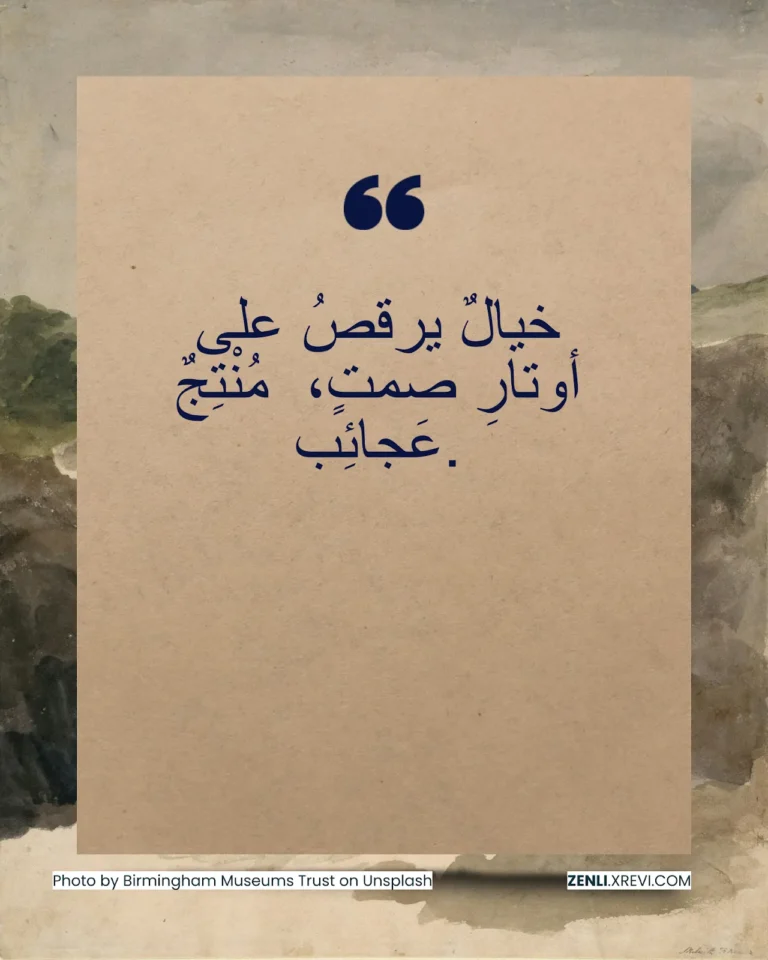 ❝
خيالٌ يرقصُ على
أوتارِ صمتٍ، مُنْتِجٌ
عَجائِب.
Photo by Birmingham Museums Trust on Unsplash
ZENLI.XREVI.COM